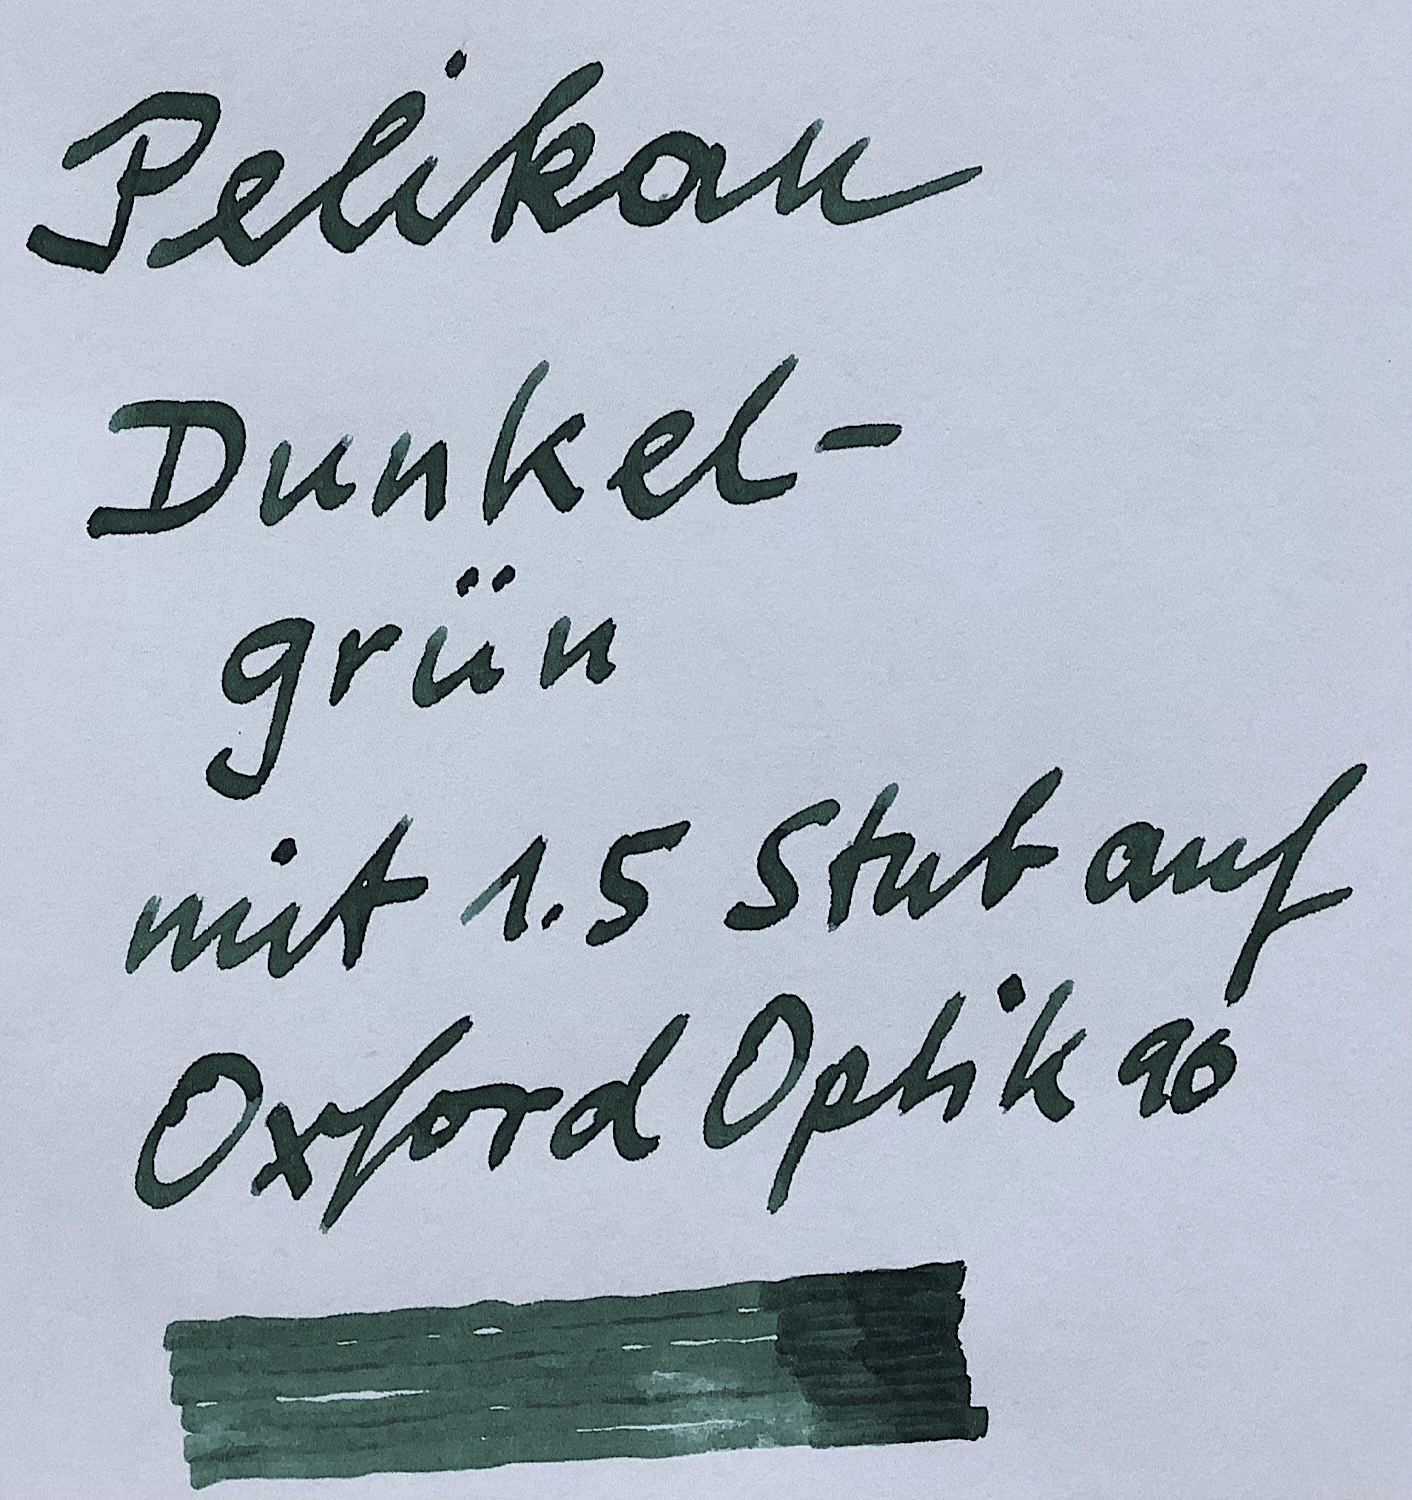 Pelikan
Dunkel-
grün
mit 1.5 Stub auf
Oxford Optik 90